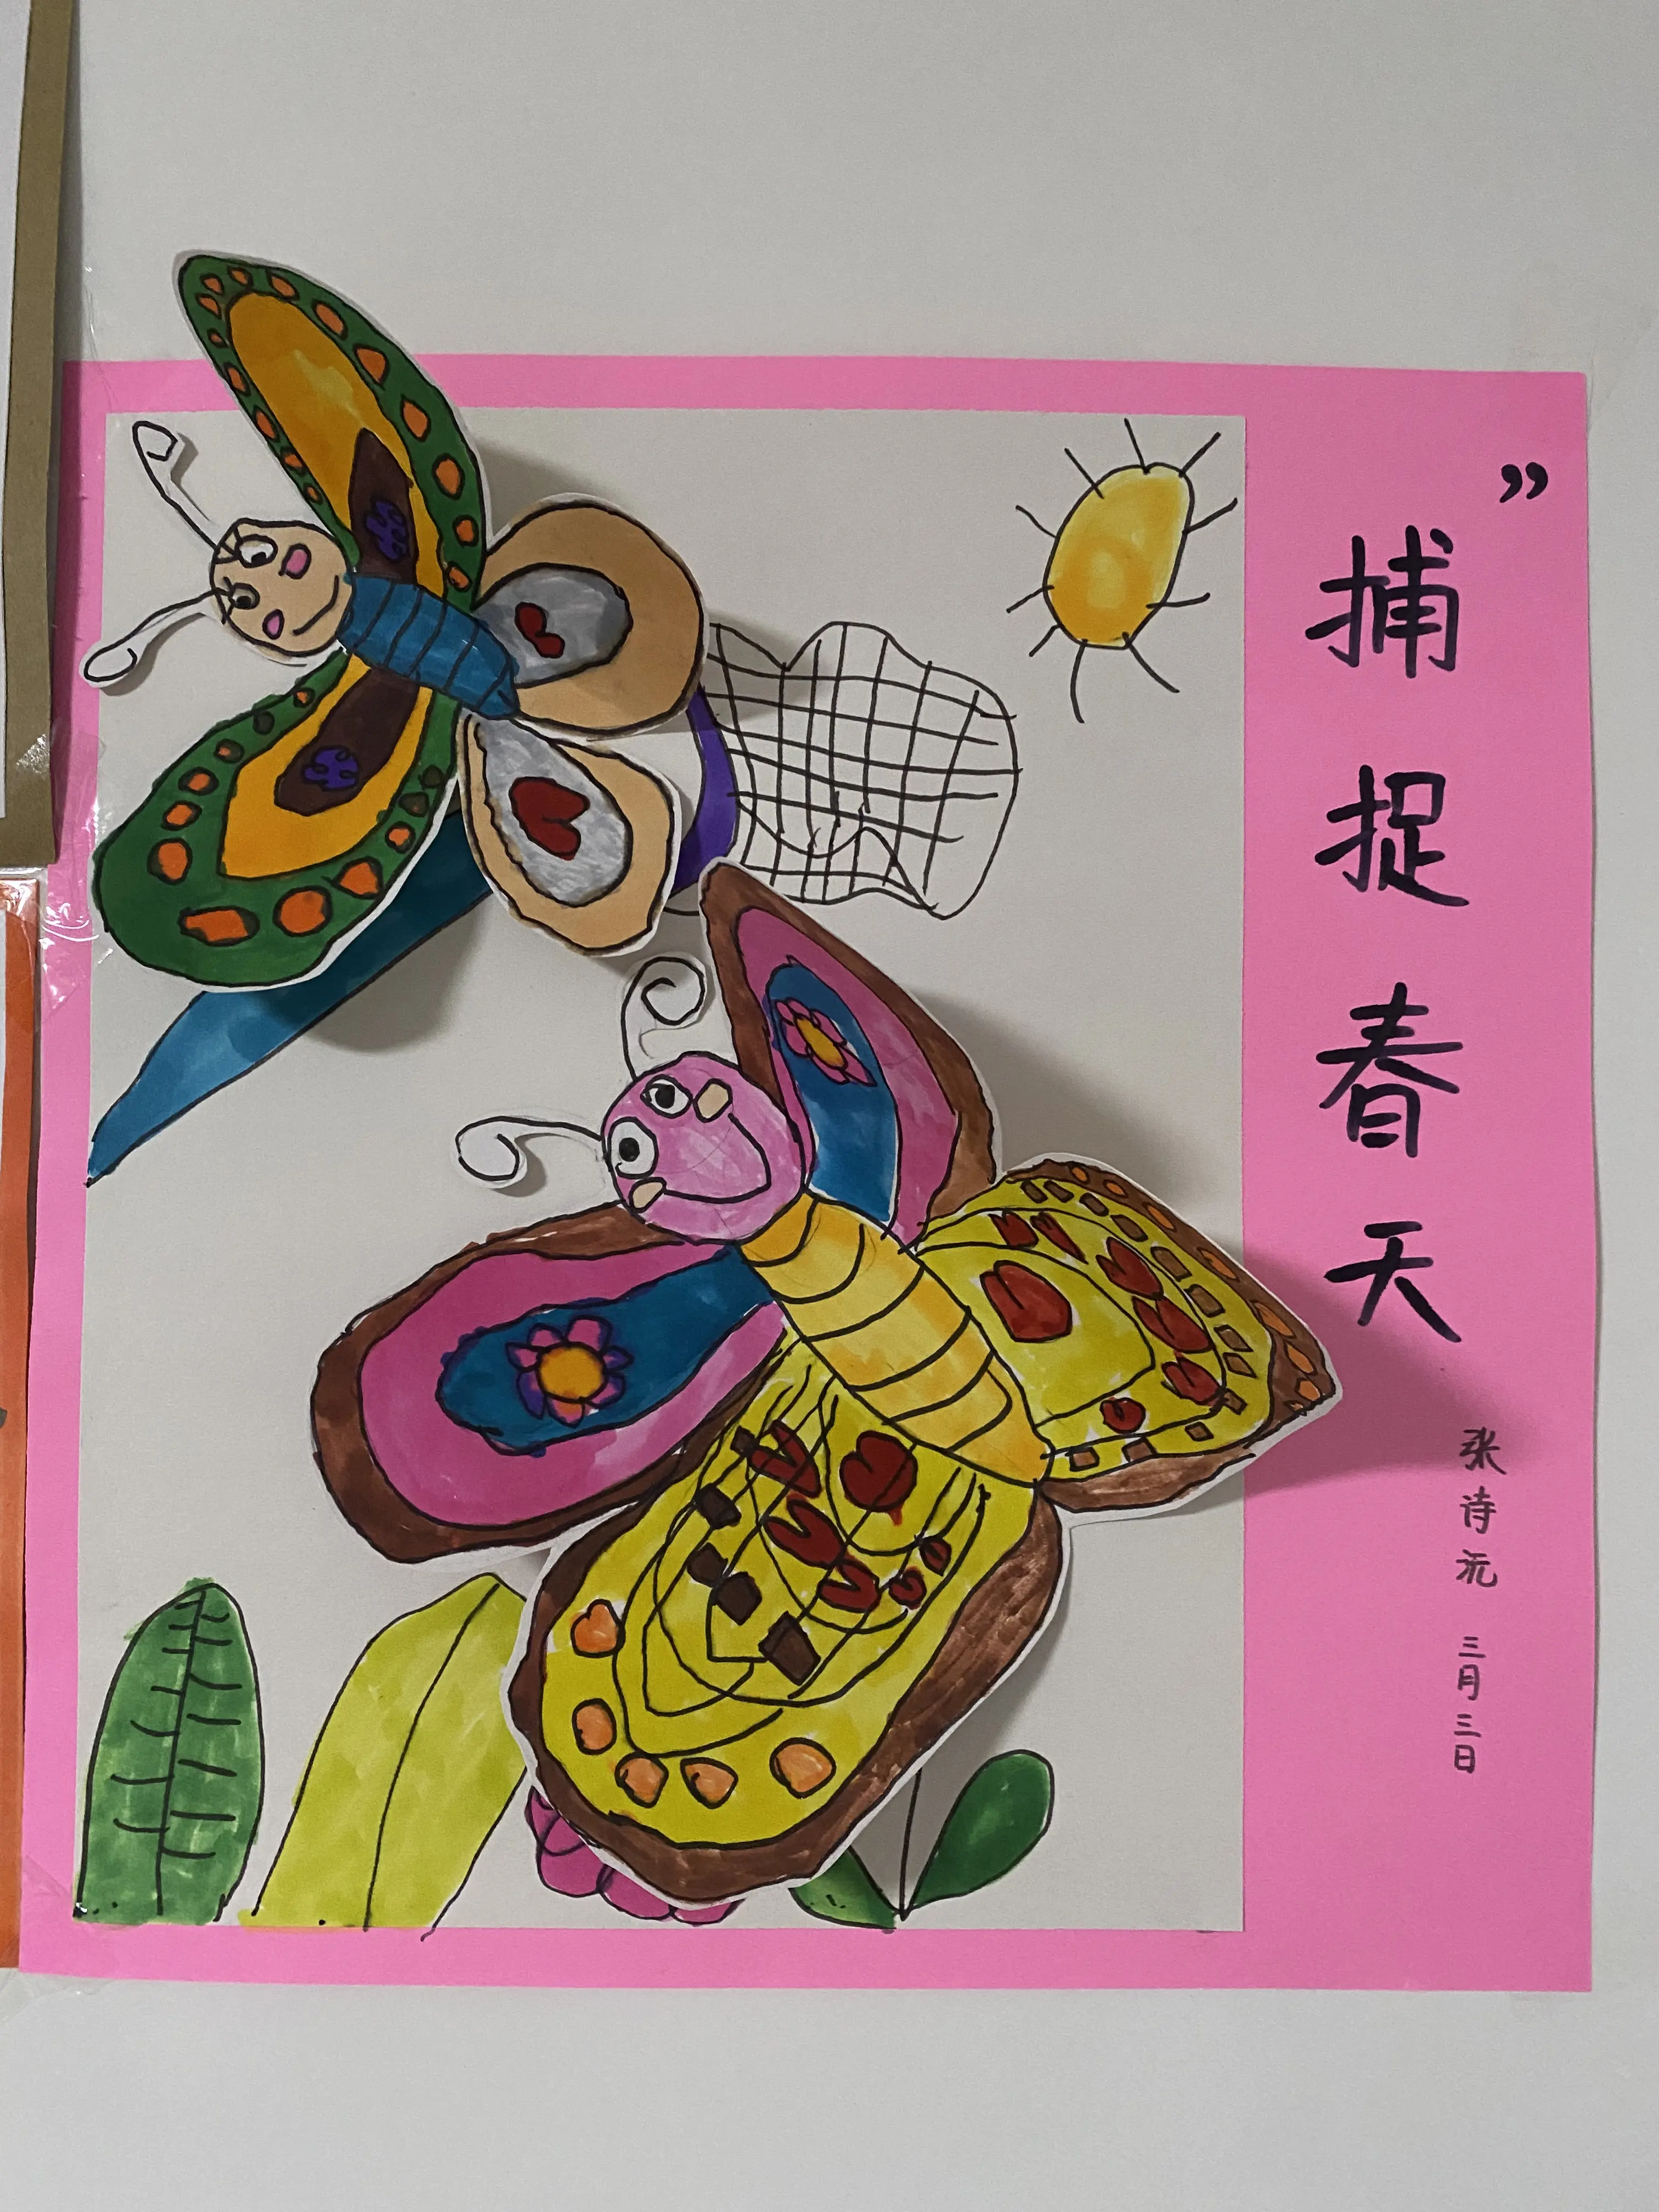 ”捕捉春天
张诗沅 三月三日